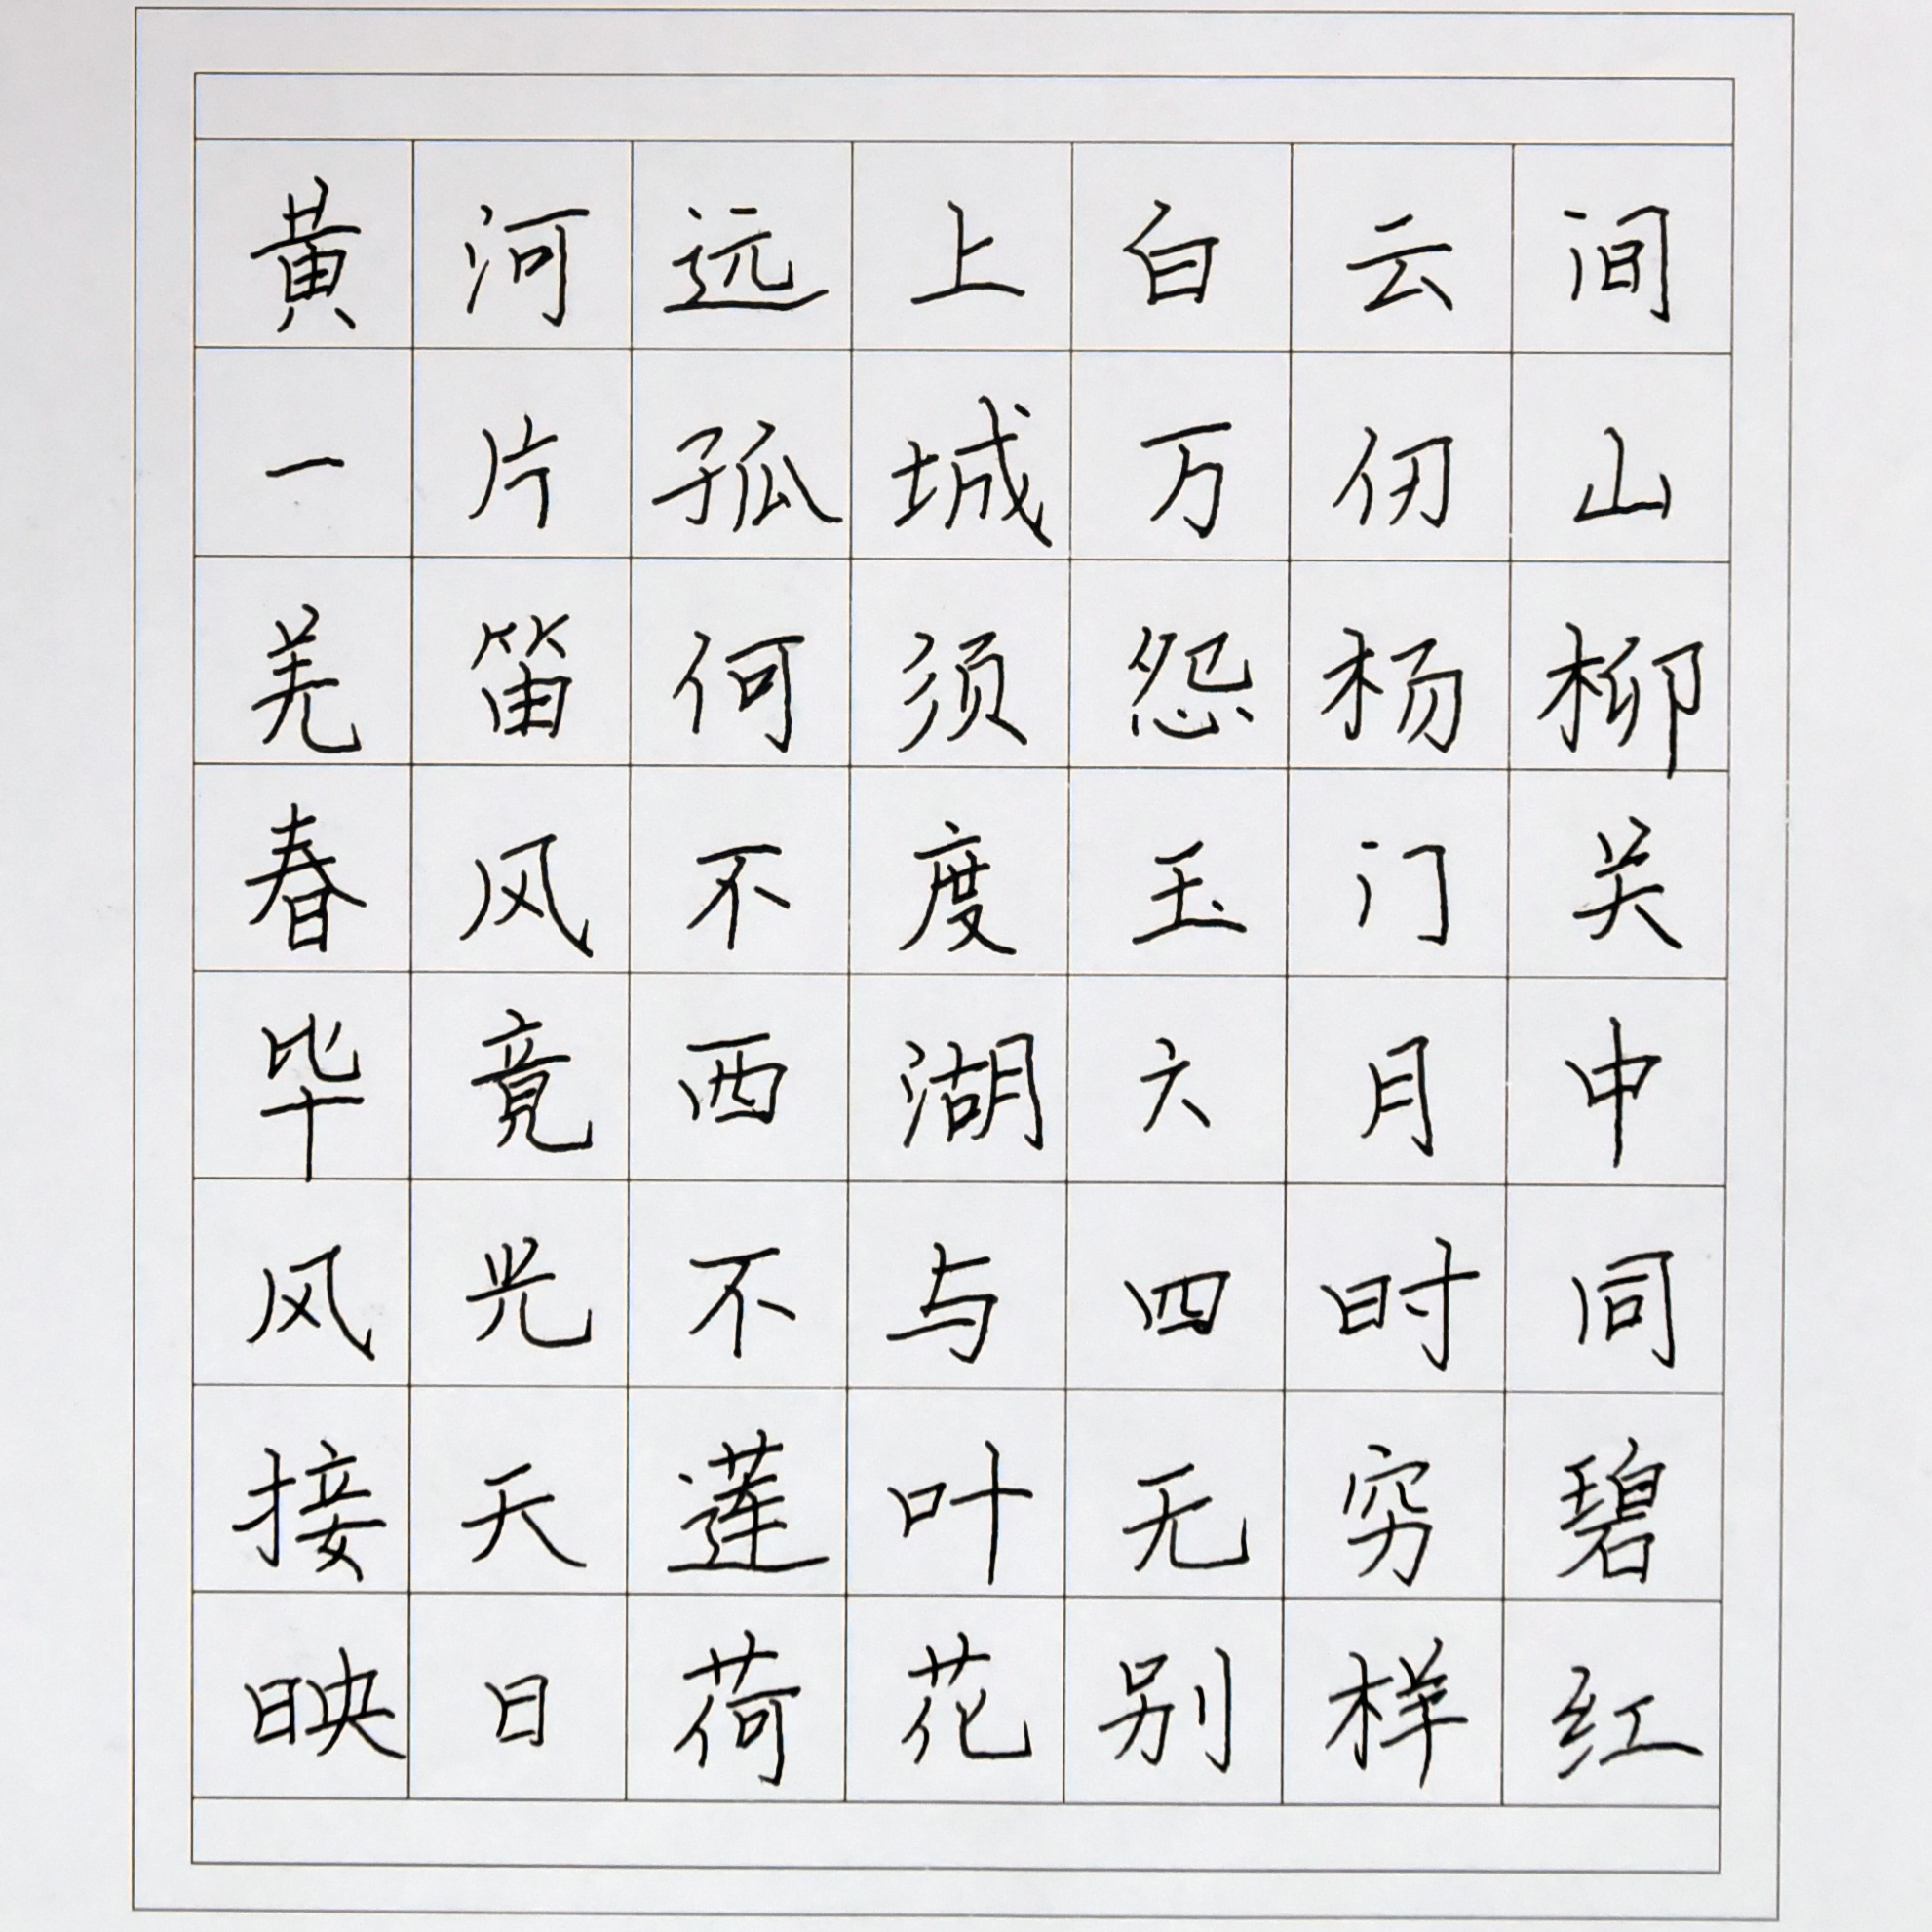 黄河远上白云间
一片孤城万仞山
羌笛何须怨杨柳
春风不度玉门关
毕竟西湖六月中
风光不与四时同
接天莲叶无穷碧
映日荷花别样红